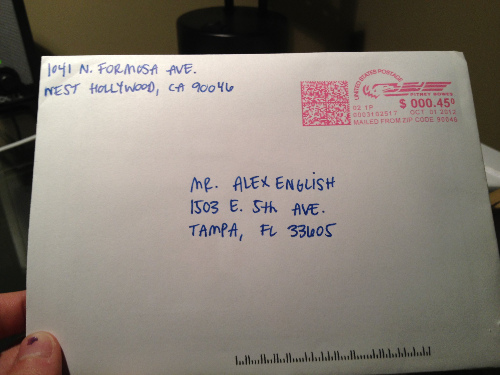 1041 N. FORMOSA AVE.
WEST HOLLYWOOD, CA 90046
UNITED STATES POSTAGE
PITNEY BOWES
$ 000.45⁰
02 1P
0003102517 OCT 01 2012
MAILED FROM ZIP CODE 90046
MR. ALEX ENGLISH
1503 E. 5th AVE.
TAMPA, FL 33605